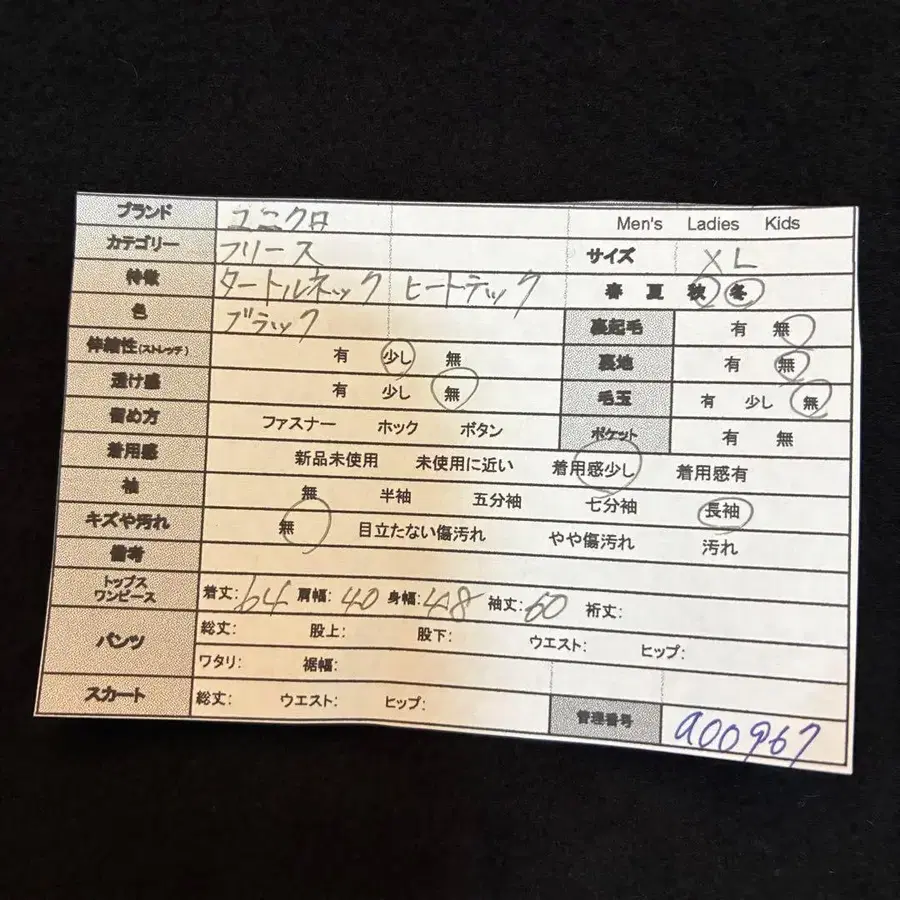 ブランド ユニクロ Men's Ladies Kids
カテゴリー フリース サイズ XL
特徴 タートルネック ヒートテック 春 夏 秋 冬
色 ブラック 裏起毛 有 無
伸縮性(ストレッチ) 有 少し 無 裏地 有 無
透け感 有 少し 無 毛玉 有 少し 無
留め方 ファスナー ホック ボタン ポケット 有 無
着用感 新品未使用 未使用に近い 着用感少し 着用感有
袖 無 半袖 五分袖 七分袖 長袖
キズや汚れ 無 目立たない傷汚れ やや傷汚れ 汚れ
備考
トップス ワンピース 着丈: 64 肩幅: 40 身幅: 48 袖丈: 60 裄丈:
パンツ 総丈: 股上: 股下: ウエスト: ヒップ:
ワタリ: 裾幅:
スカート 総丈: ウエスト: ヒップ: 管理番号 a00967